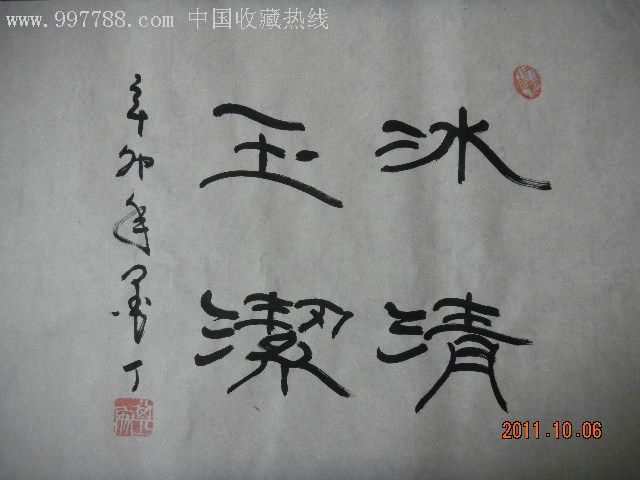 www.997788.com 中国收藏热线
冰清
玉潔
辛卯年墨丁
2011.10.06